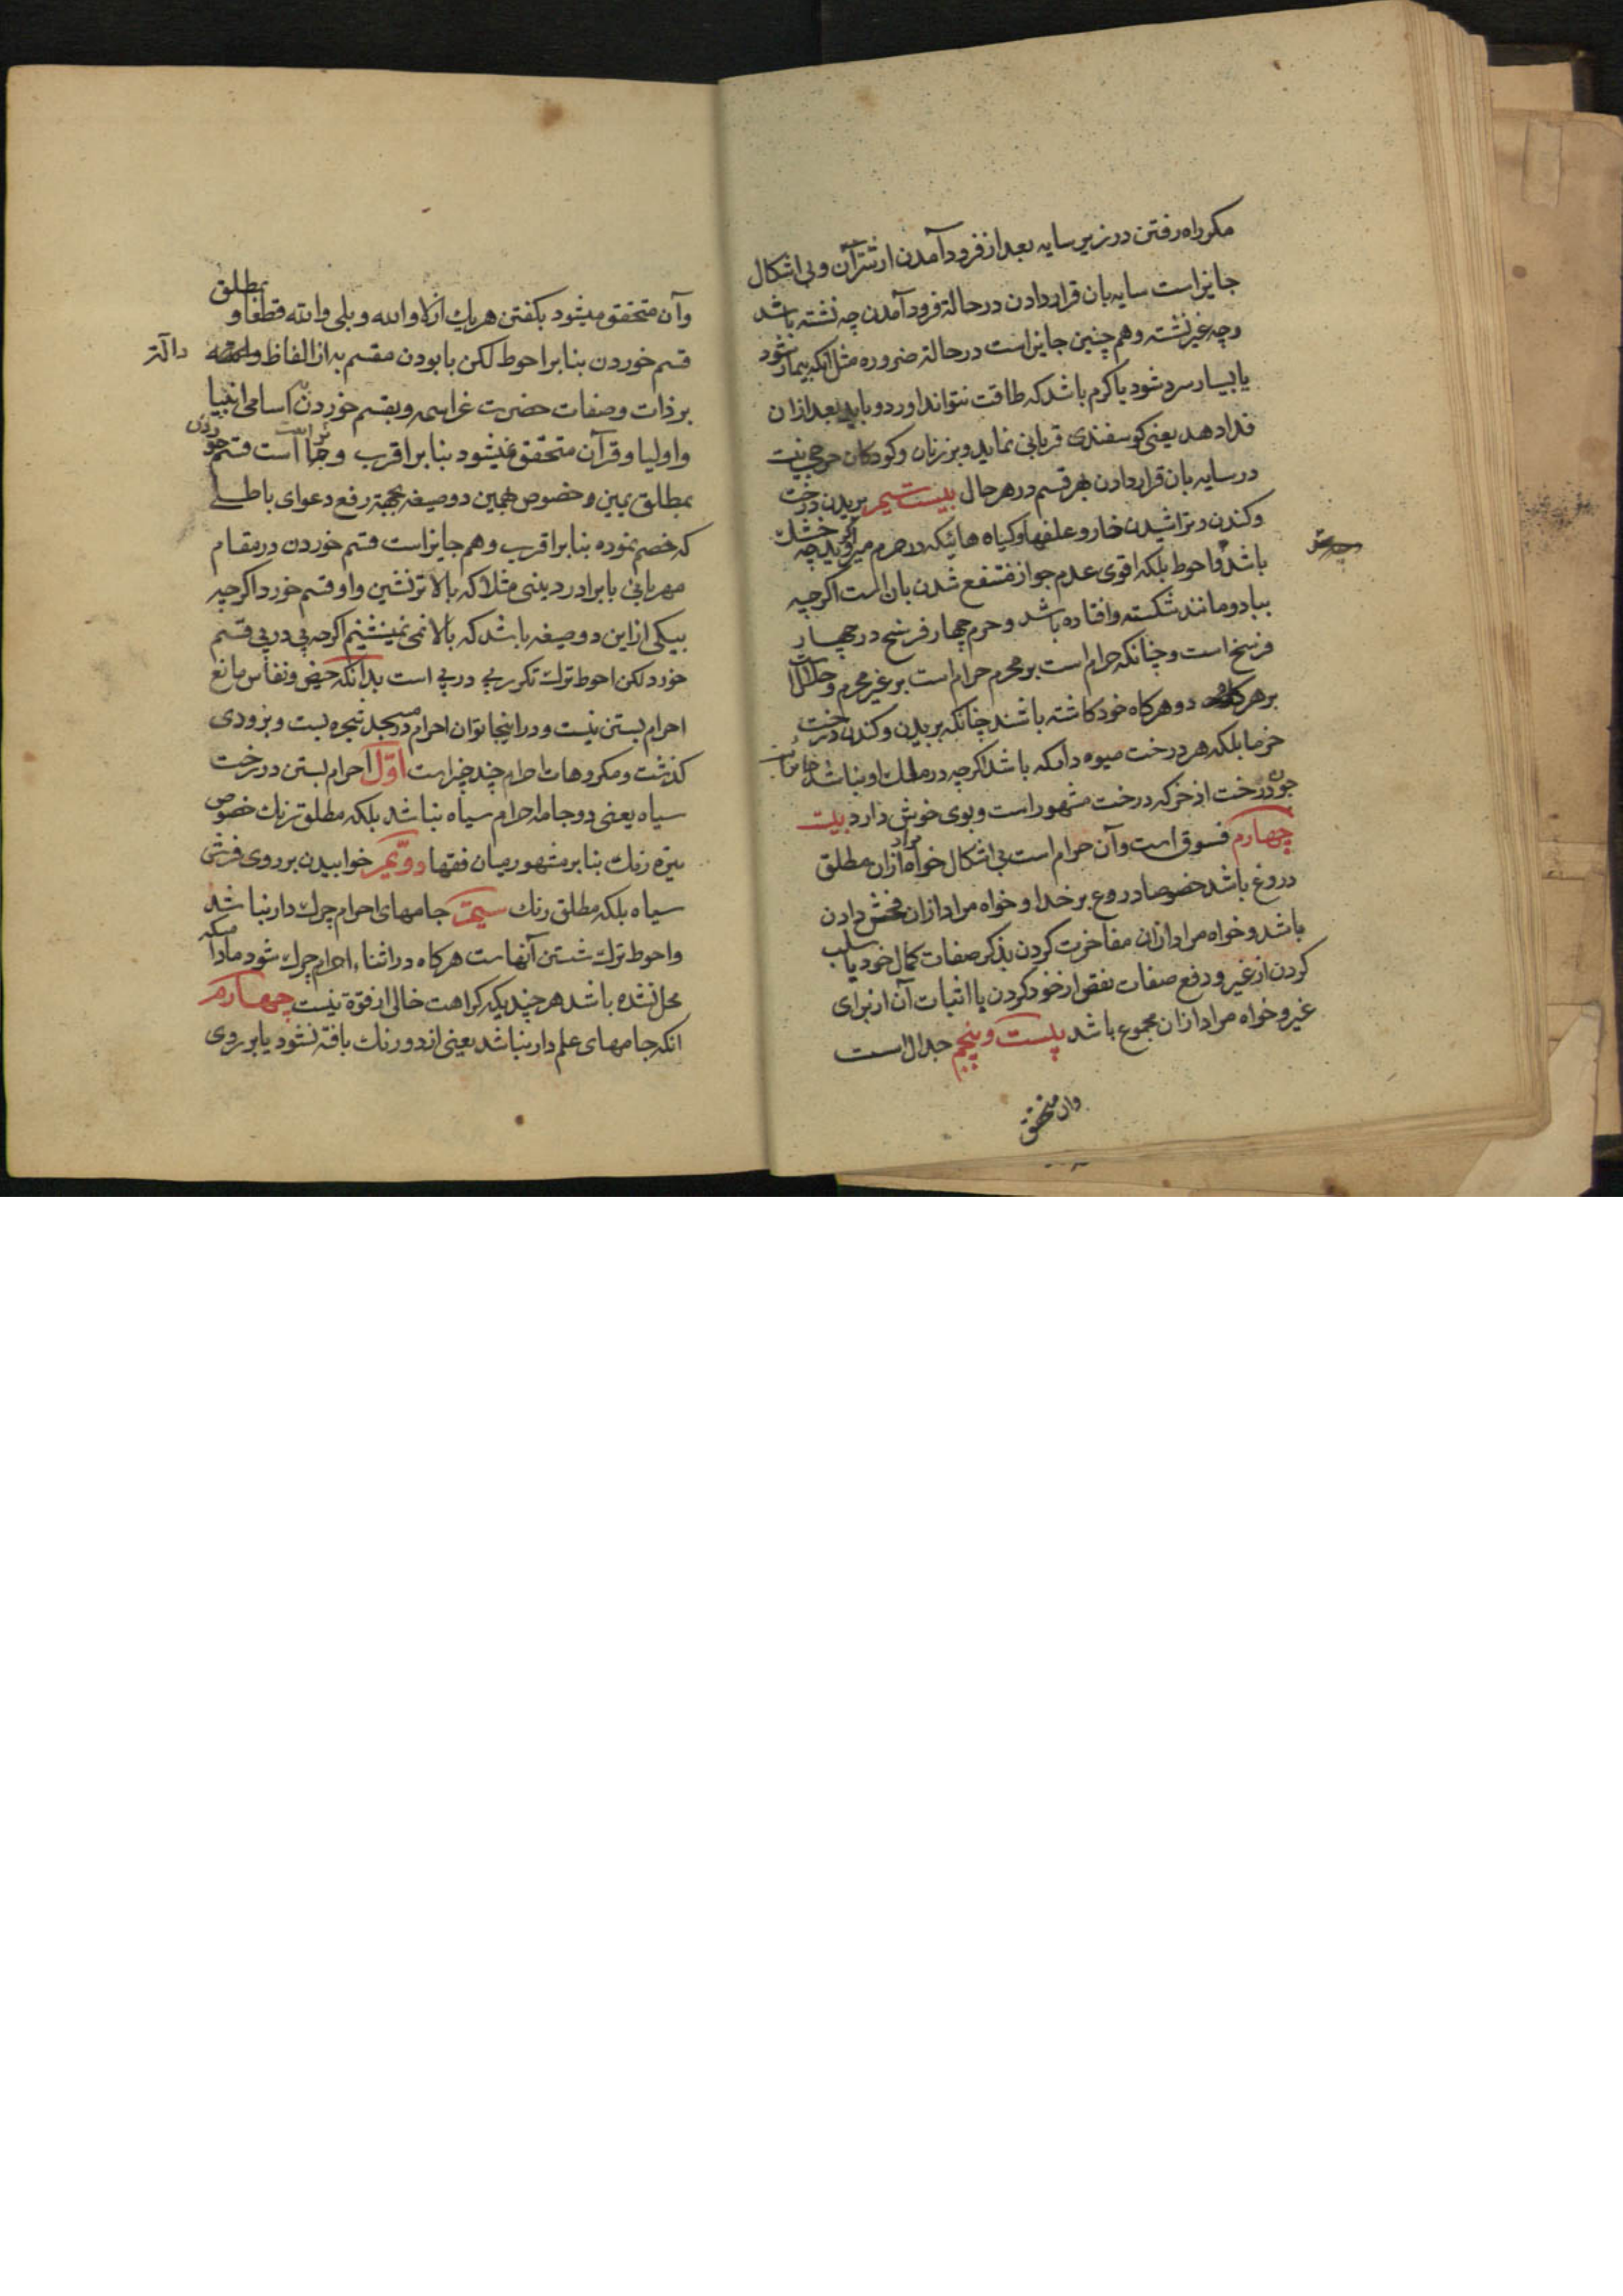 مکر راه رفتن در زیر سایه بعد از فرود آمدن از شتر آن و بی اشکال
جایز است سایه بان قرار دادن در حالة فرود آمدن چه نشته باشد
و چه غیر نشته و هم چنین جایز است در حالة ضروره مثل آنکه بیمار شود
یا بسیار سرد شود یا کرم باشد که طاقت نتواند اورد و باید بعد از ان
فدا دهد یعنی کوسفندی قربانی نماید و بر زنان و کودکان حرجی نیت
در سایه بان قرار دادن بهر قسم در هر حال بیست سیم بریدن درخت
و کندن و تراشیدن خار و علفها و کیاه هائیکه در حرم میروید چه خشک
باشد و احوط بلکه اقوی عدم جواز منتفع شدن بان است اکرچه
بباد و مانند شکسته و افتاده باشد و حرم چهار فرسخ در چهار
فرسخ است و چنانکه حرام است بر محرم حرام است بر غیر محرم و حلال است
بر هر دو هرکاه خود کاشته باشند چنانکه بریدن و کندن درخت
خرما بلکه هر درخت میوه دامکه باشد اکرچه در ملک او نباشد جایز است
چون درخت اذخر که درخت مشهور است و بوی خوش دارد بیت
چهارم فسوق است و آن حرام است بی اشکال خواه مراد ازان مطلق
دروغ باشد خصوصا دروغ بر خدا و خواه مراد ازان فحش دادن
باشد و خواه مراد ازان مفاخرت کردن بذکر صفات کمال خود یا سلب
کردن از غیر و دفع صفات نقص از خود کردن یا اثبات آن از برای
غیر و خواه مراد ازان مجموع باشد بیست و پنجم جدال است
وان متحقق
وآن متحقق میشود بکفتن هر یك از لا والله و بلی والله قطعا و بمطلق
قسم خوردن بنا بر احوط لکن با بودن مقسم به از الفاظ دالة
بر ذات و صفات حضرت عز اسمه و بقسم خوردن باسامی انبیا
و اولیا و قرآن متحقق نمیشود بنا بر اقرب و جایز است قسم خوردن
بمطلق یمین و خصوص همین دو صیغه بجهة رفع دعوای باطلی
که خصم نموده بنا بر اقرب و هم جایز است قسم خوردن در مقام
مهربانی با برادر دینی مثلا که بالاتر نشین و او قسم خورد اکرچه
بیکی از این دو صیغه باشد که بالا نمی نشینم اکرچه پی در پی قسم
خورد لکن احوط ترك تکرر پی در پی است بدانکه حیض و نفاس مانع
احرام بستن نیست و در اینجا توان احرام در مسجد شجره بست و بزودی
کذشت و مکروهات احرام چند چیز است اوّل احرام بستن در رخت
سیاه یعنی دو جامه احرام سیاه نباشد بلکه مطلق رنك خصوص
تیره رنك بنا بر مشهور میان فقها دوّیم خوابیدن بر روی فرش
سیاه بلکه مطلق رنك سیّم جامهای احرام چرك دار نباشد
و احوط ترك شستن آنهاست هرکاه در اثناء احرام چرك شود مادامیکه
محل نشده باشد هر چندیکه کراهت خالی از قوة نیست چهارم
انکه جامهای علم دار نباشد یعنی از دو رنك بافته نشود یا بر روی